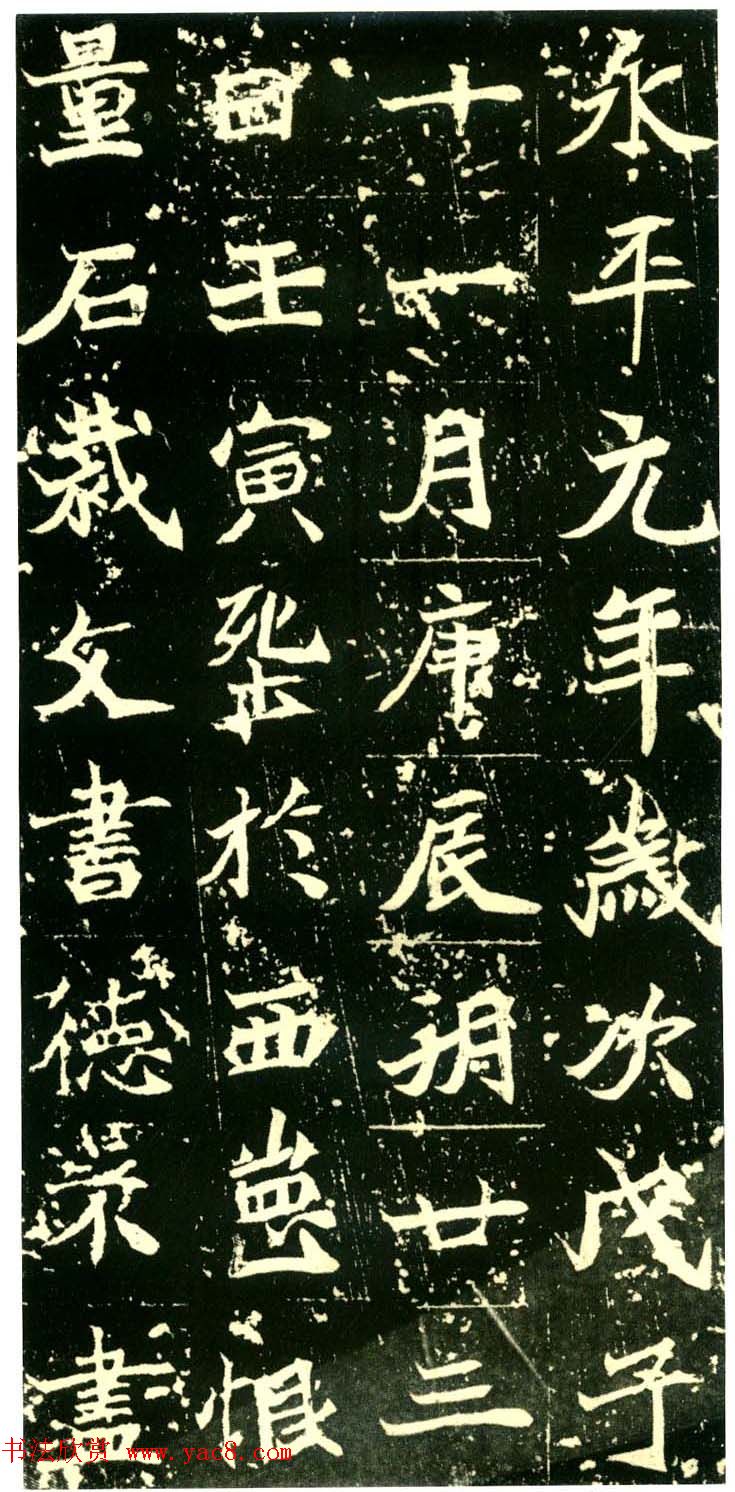 永平元年歲次戊子
十一月庚辰朔廿三
日壬寅葬於西崗恨
量石裁文書德盡
书法欣赏 www.yac8.com